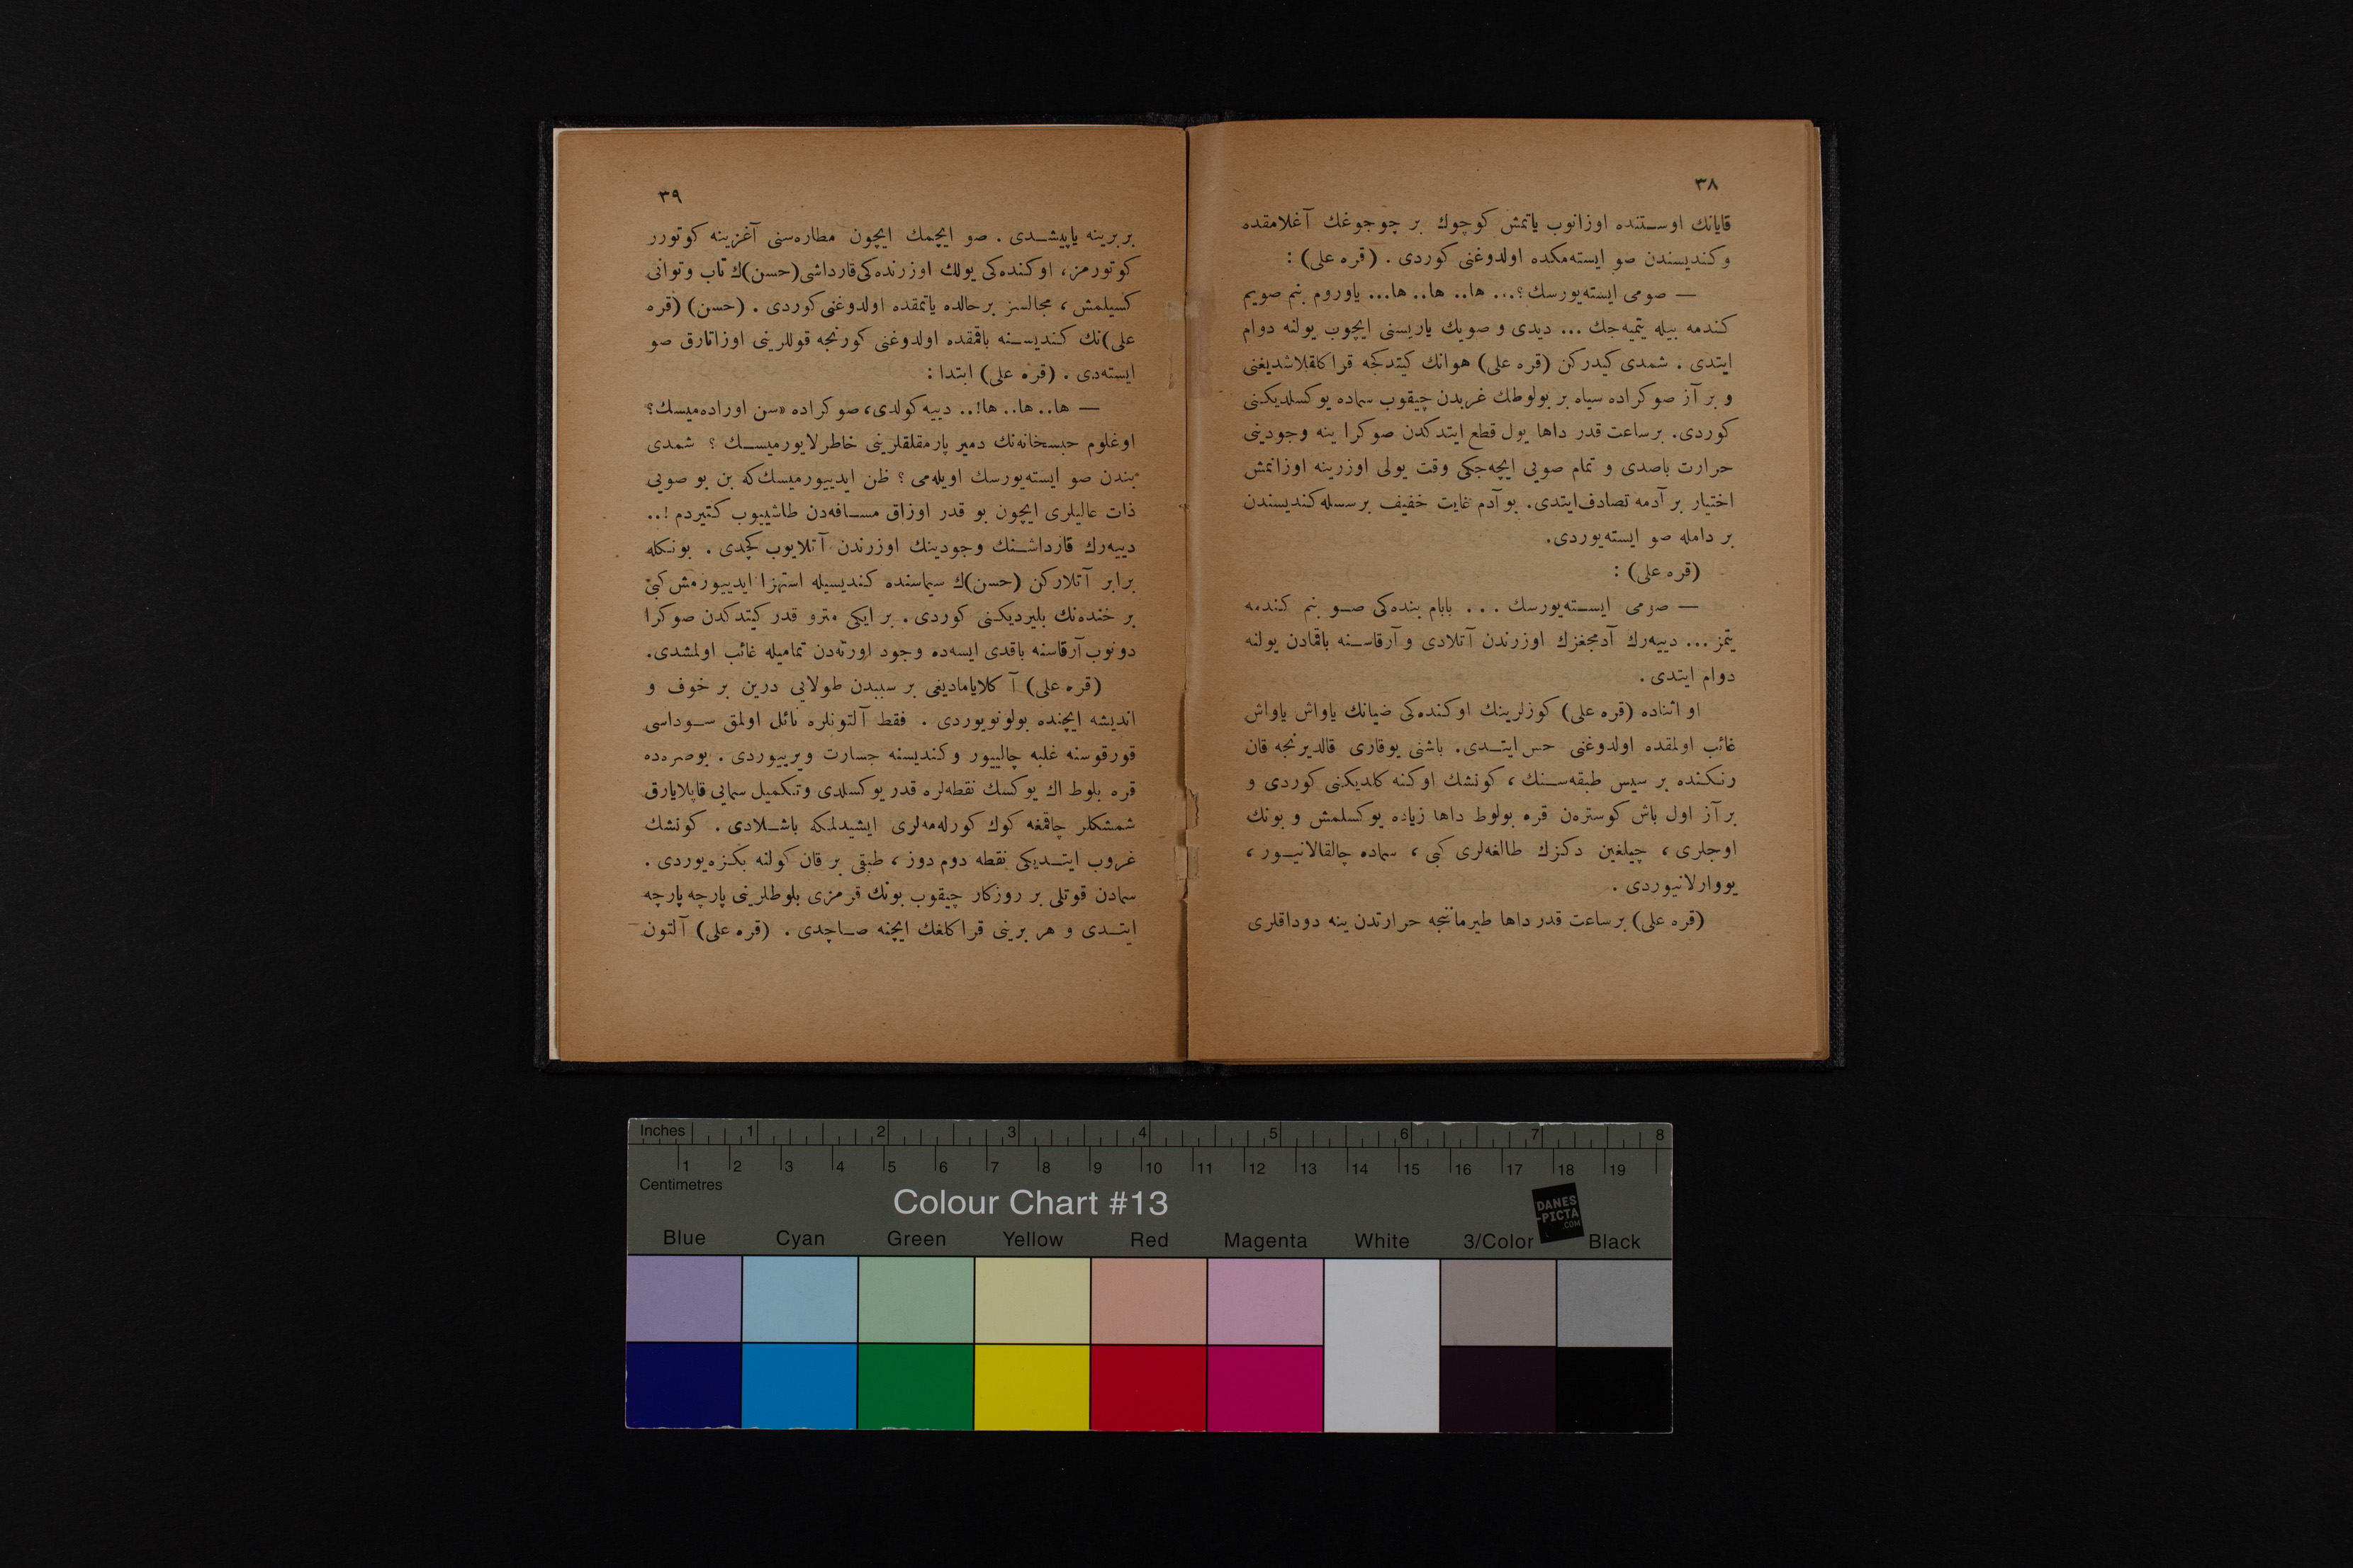 ٣٨
قایانك اوستنده اوزانوب یاتمش كوچوك بر چوجوغك آغلامقده
وكندیسندن صو ایسته‌مكده اولدوغنی كوردی . (قره علی) :
— صومی ایسته‌یورسك؟... ها.. ها.. ها... یاوروم بنم صویم
كندمه بیله یتمیه‌جك ... دیدی و صویك یاریسنی ایچوب یولنه دوام
ایتدی . شمدی كیدركن (قره علی) هوانك كیتدكجه قراكلقلاشدیغنی
و بر آز صوكراده سیاه بر بولوطك غربدن چیقوب سماده یوكسلدیكنی
كوردی. برساعت قدر داها یول قطع ایتدكدن صوكرا ینه وجودینی
حرارت باصدی و تمام صویی ایچه‌جكی وقت یولی اوزرینه اوزانمش
اختیار بر آدمه تصادف‌ایتدی. بو آدم غایت خفیف برسسله كندیسندن
بر دامله صو ایسته‌یوردی.
(قره علی) :
— صومی ایسته‌یورسك ... بابام بنده‌كی صو بنم كندمه
یتمز ... دییه‌رك آدمجغزك اوزرندن آتلادی و آرقاسنه باقمادن یولنه
دوام ایتدی .
او اثناده (قره علی) كوزلرینك اوكنده‌كی ضیانك یاواش یاواش
غائب اولمقده اولدوغنی حس‌ایتدی. باشنی یوقاری قالدیرنجه قان
رنكنده بر سیس طبقه‌سنك ، كونشك اوكنه كلدیكنی كوردی و
بر آز اول باش كوستره‌ن قره بولوط داها زیاده یوكسلمش و بونك
اوجلری ، چیلغین دكزك طالغه‌لری كبی ، سماده چالقالانیور ،
یووارلانیوردی .
(قره علی) برساعت قدر داها طیرماننجه حرارتدن ینه دوداقلری
٣٩
بربرینه یاپیشدی . صو ایچمك ایچون مطاره‌سنی آغزینه كوتورر
كوتورمز، اوكنده‌كی یولك اوزرنده‌كی‌قارداشی(حسن)ك تاب وتوانی
كسیلمش ، مجالسز برحالده یاتمقده اولدوغنی كوردی . (حسن) (قره
علی)نك كندیسنه باقمقده اولدوغنی كورنجه قوللرینی اوزاتارق صو
ایسته‌دی . (قره علی) ابتدا :
— ها.. ها.. ها!.. دییه كولدی، صوكراده «سن اوراده‌میسك؟
اوغلوم حبسخانه‌نك دمیر پارمقلقلرینی خاطرلایورمیسك ؟ شمدی
بندن صو ایسته‌یورسك اویله‌می ؟ ظن ایدییورمیسك‌كه بن بو صویی
ذات عالیلری ایچون بو قدر اوزاق مسافه‌دن طاشییوب كتیردم !..
دییه‌رك قارداشنك وجودینك اوزرندن آتلایوب كچدی . بونكله
برابر آتلاركن (حسن)ك سیماسنده كندیسیله استهزا ایدییورمش كبی
بر خنده‌نك بلیردیكنی كوردی . بر ایكی مترو قدر كیتدكدن صوكرا
دونوب آرقاسنه باقدی ایسه‌ده وجود اورته‌دن تمامیله غائب اولمشدی.
(قره علی) آكلایامادیغی بر سببدن طولایی درین بر خوف و
اندیشه ایچنده بولونویوردی . فقط آلتونلره نائل اولمق سوداسی
قورقوسنه غلبه چالییور وكندیسنه جسارت ویرییوردی . بوصره‌ده
قره بلوط اك یوكسك نقطه‌لره قدر یوكسلدی وتكمیل سمایی قاپلایارق
شمشكلر چاقمغه كوك كورله‌مه‌لری ایشیدلمكه باشلادی . كونشك
غروب ایتدیكی نقطه دوم دوز ، طبقی بر قان كولنه بكزه‌یوردی .
سمادن قوتلی بر روزكار چیقوب بونك قرمزی بلوطلرینی پارچه پارچه
ایتدی و هر برینی قراكلغك ایچنه صاچدی . (قره علی) آلتون
Inches 1 2 3 4 5 6 7 8
1 2 3 4 5 6 7 8 9 10 11 12 13 14 15 16 17 18 19
Centimetres
Colour Chart #13
DANES
-PICTA
.COM
Blue Cyan Green Yellow Red Magenta White 3/Color Black